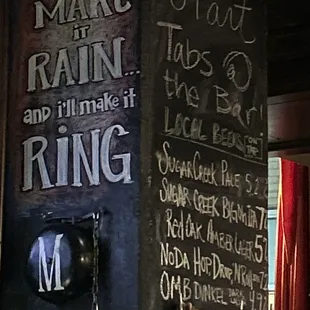 MAKE
it
RAIN...
and i'll make it
RING
M
Start
Tabs @
the Bar!
LOCAL BEERS ON TAP
SUGAR CREEK PALE 5.
SUGAR CREEK BIG 7.
RED OAK AMBER LAGER 5.
NODA HOP DROP N ROLL 7.
OMB DUNKEL 4.9